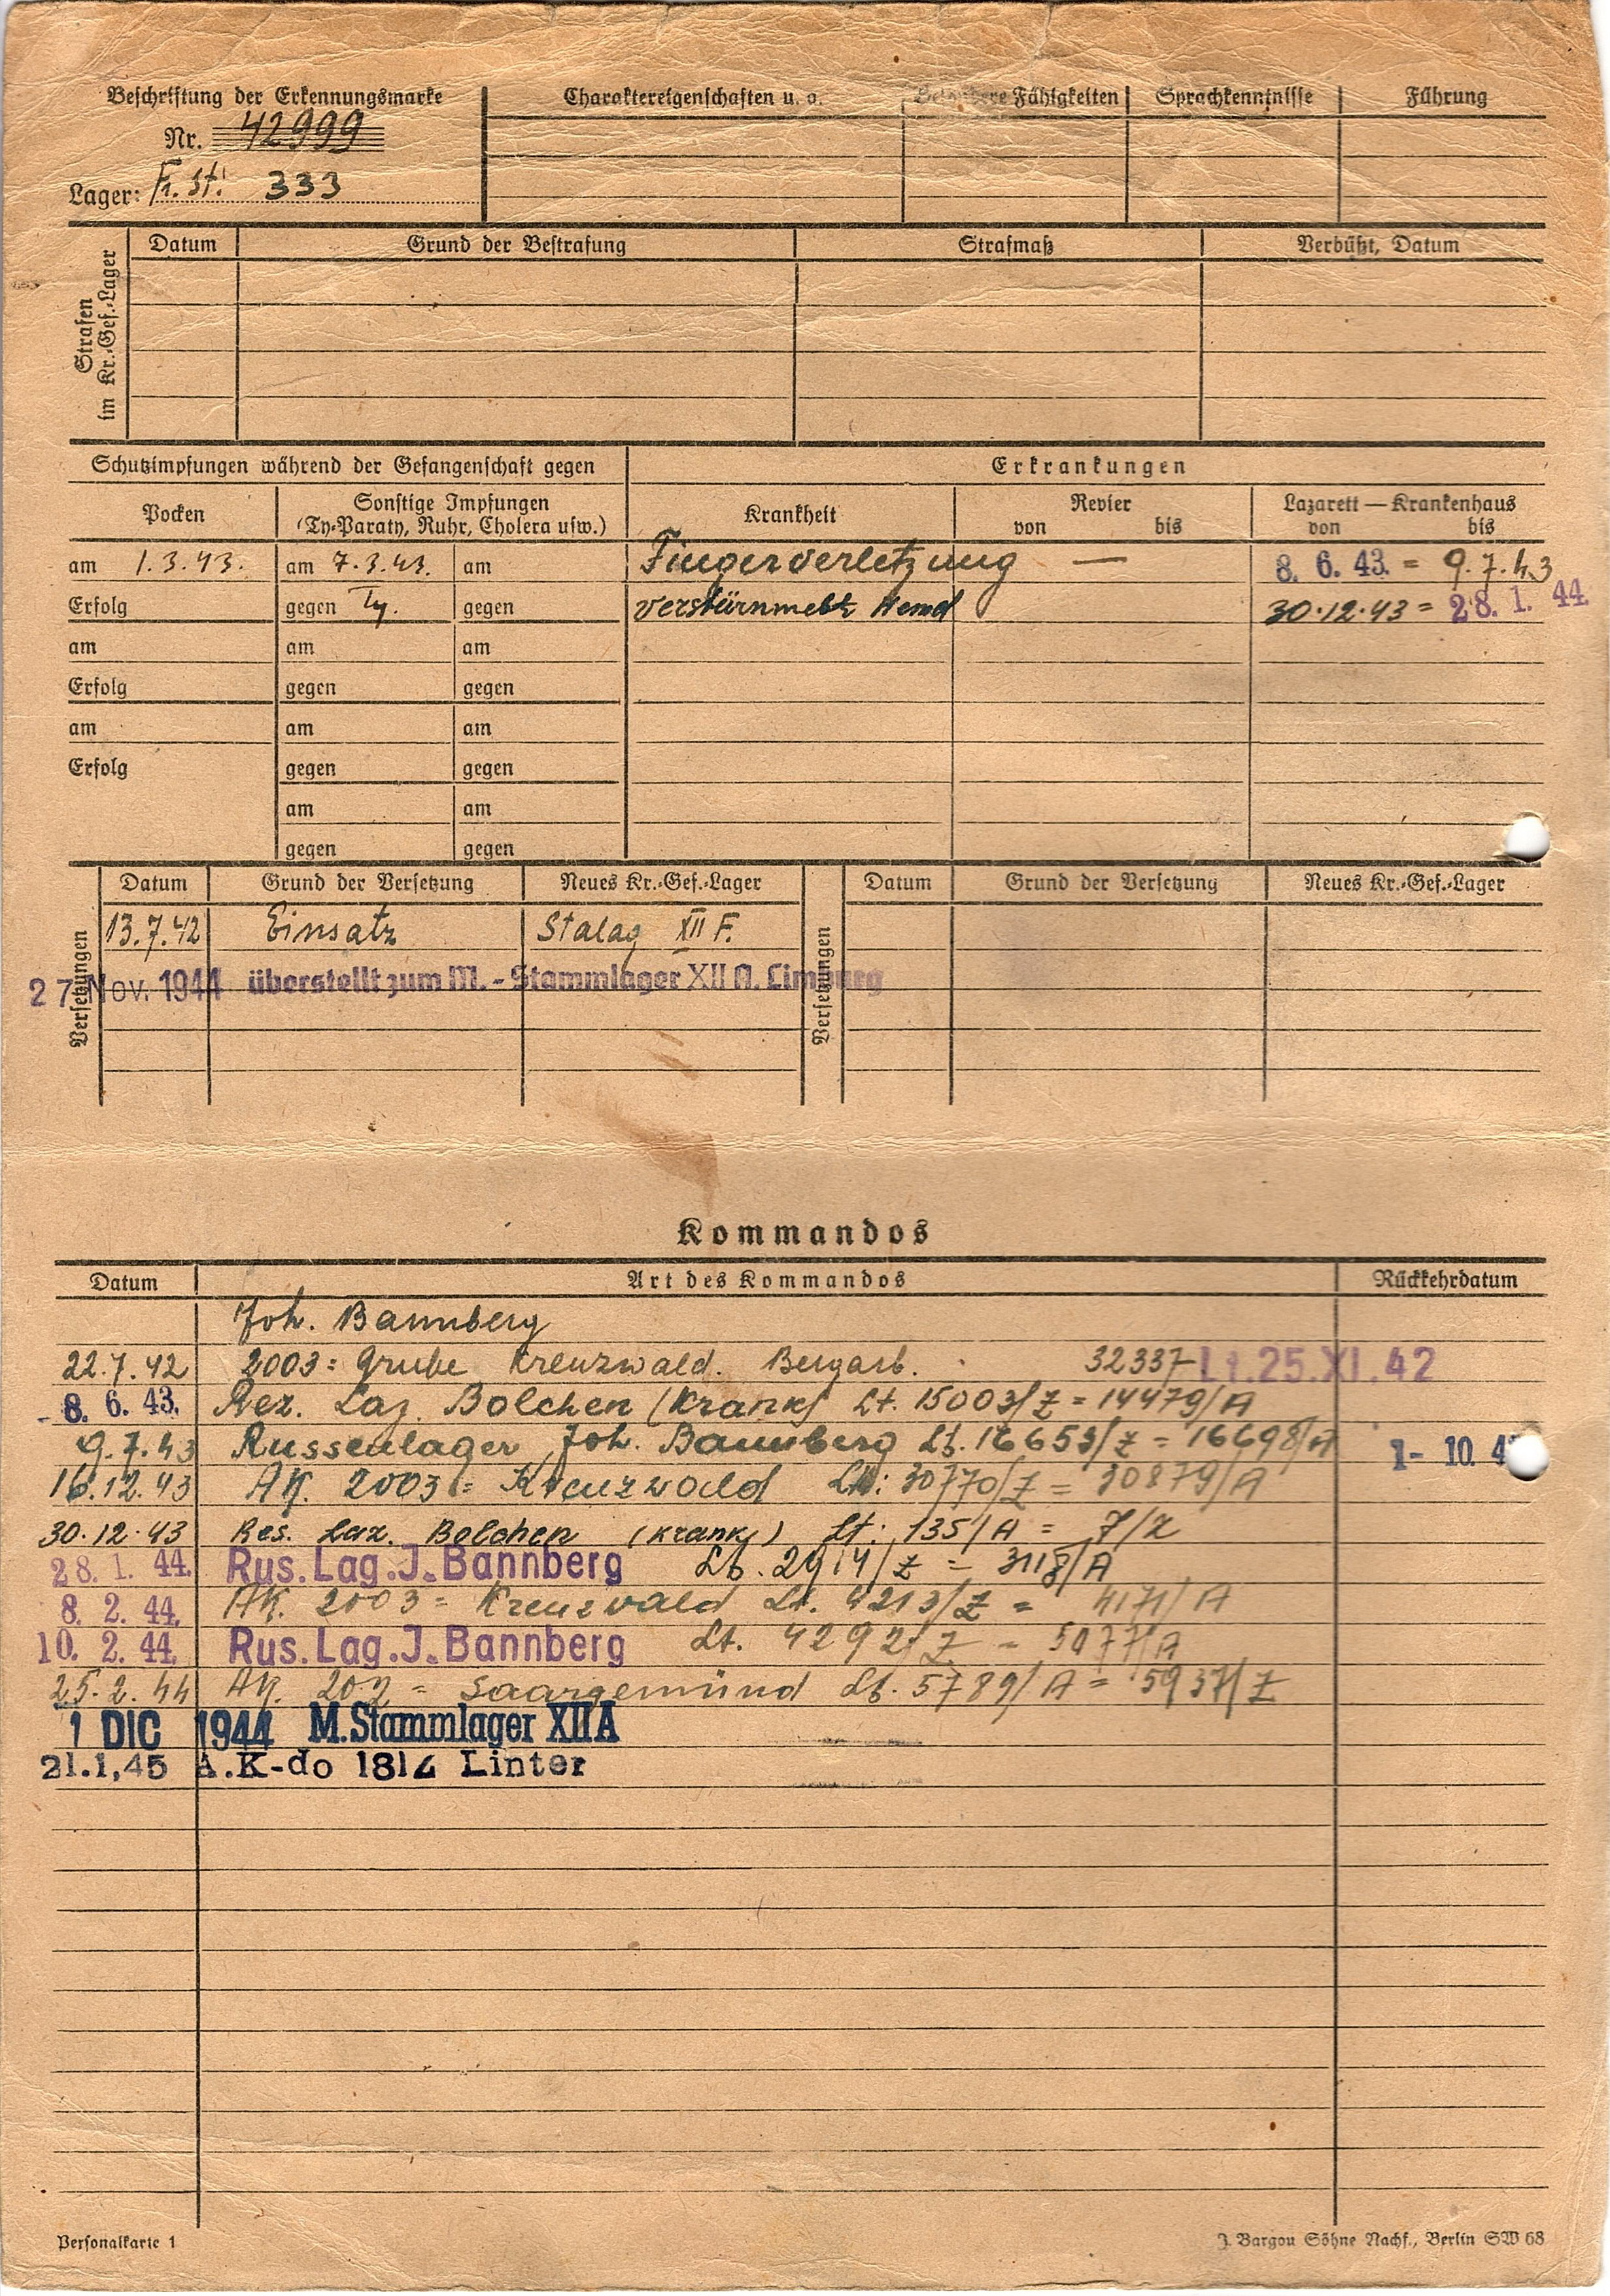 Beschriftung der Erkennungsmarke
Nr. 42999
Lager: Fr. St. 333
Charaktereigenschaften u. a.
Besondere Fähigkeiten
Sprachkenntnisse
Führung
Strafen im Kr.-Gef.-Lager
Datum Grund der Bestrafung Strafmaß Verbüßt, Datum
Schutzimpfungen während der Gefangenschaft gegen
Erkrankungen
Pocken
Sonstige Impfungen
(Ty-Paraty, Ruhr, Cholera usw.)
Krankheit
Revier
von bis
Lazarett — Krankenhaus
von bis
am 1.3.43. am 7.3.43. am Fingerverletzung — 8. 6. 43. = 9.7.43
Erfolg gegen Ty. gegen 30.12.43 = 28. 1. 44.
am am am
Erfolg gegen gegen
am am am
Erfolg gegen gegen
am am
gegen gegen
Versetzungen
Datum Grund der Versetzung Neues Kr.-Gef.-Lager
13.7.42 Einsatz Stalag XII F.
27. Nov. 1944 überstellt zum M.-Stammlager XII A. Limburg
Versetzungen
Datum Grund der Versetzung Neues Kr.-Gef.-Lager
Kommandos
Datum Art des Kommandos Rückkehrdatum
Joh. Bannberg
22.7.42 2003 = Grube Kreuzwald. Bergarb. 32337 Lt. 25. XI. 42
8. 6. 43. Rez. Laz. Bolchen (Krank) Lt. 15003/Z = 14479/A
9.7.43 Russenlager Joh. Bannberg Lt. 16653/Z = 16698/A 1- 10. 4
16.12.43 AK. 2003 = Kreuzwald Lt: 30770/Z = 30879/A
30.12.43 Res. Laz. Bolchen (krank) Lt: 135/A = 7/Z
28. 1. 44. Rus. Lag. J. Bannberg Lt. 2914/Z = 3118/A
8. 2. 44. AK. 2003 = Kreuzwald Lt. 4213/Z = 4171/A
10. 2. 44. Rus. Lag. J. Bannberg Lt. 4292/Z = 5077/A
25.2.44 AK. 202 = Saargemünd Lt. 5789/A = 5937/Z
1 DIC 1944 M. Stammlager XII A
21.1,45 A.K-do 1812 Linter
Personalkarte 1
J. Bargou Söhne Nachf., Berlin SW 68